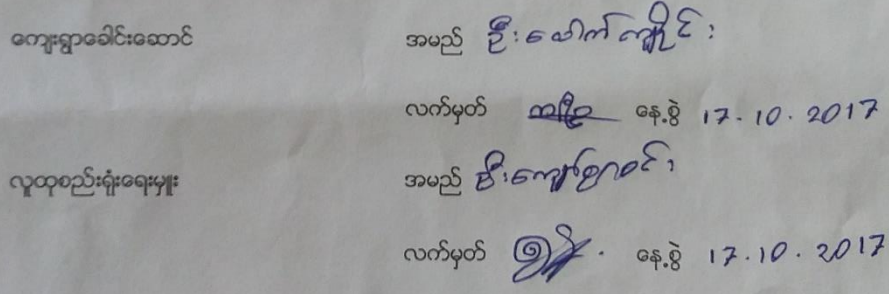 ကျေးရွာခေါင်းဆောင် အမည် ဦး
လက်မှတ် နေ့စွဲ 17.10.2017
လူထုစည်းရုံးရေးမှူး အမည် ဦးကျော်စွာဝင်း
လက်မှတ် နေ့စွဲ 17.10.2017